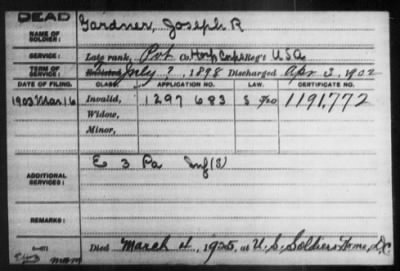 DEAD
NAME OF SOLDIER: Gardner, Joseph R
SERVICE: Late rank, Pvt Co. Hosp Corps Reg't U.S.A.
TERM OF SERVICE: Enlisted July ?, 1898 Discharged Apr 3, 1902
DATE OF FILING. CLASS. APPLICATION NO. LAW. CERTIFICATE NO.
1903 Mar 16 Invalid, 1297683 1191,772
Widow,
Minor,
ADDITIONAL SERVICES: E 3 Pa Inf (S)
REMARKS:
Died March 4, 1925, at U.S. Soldiers Home, D.C.